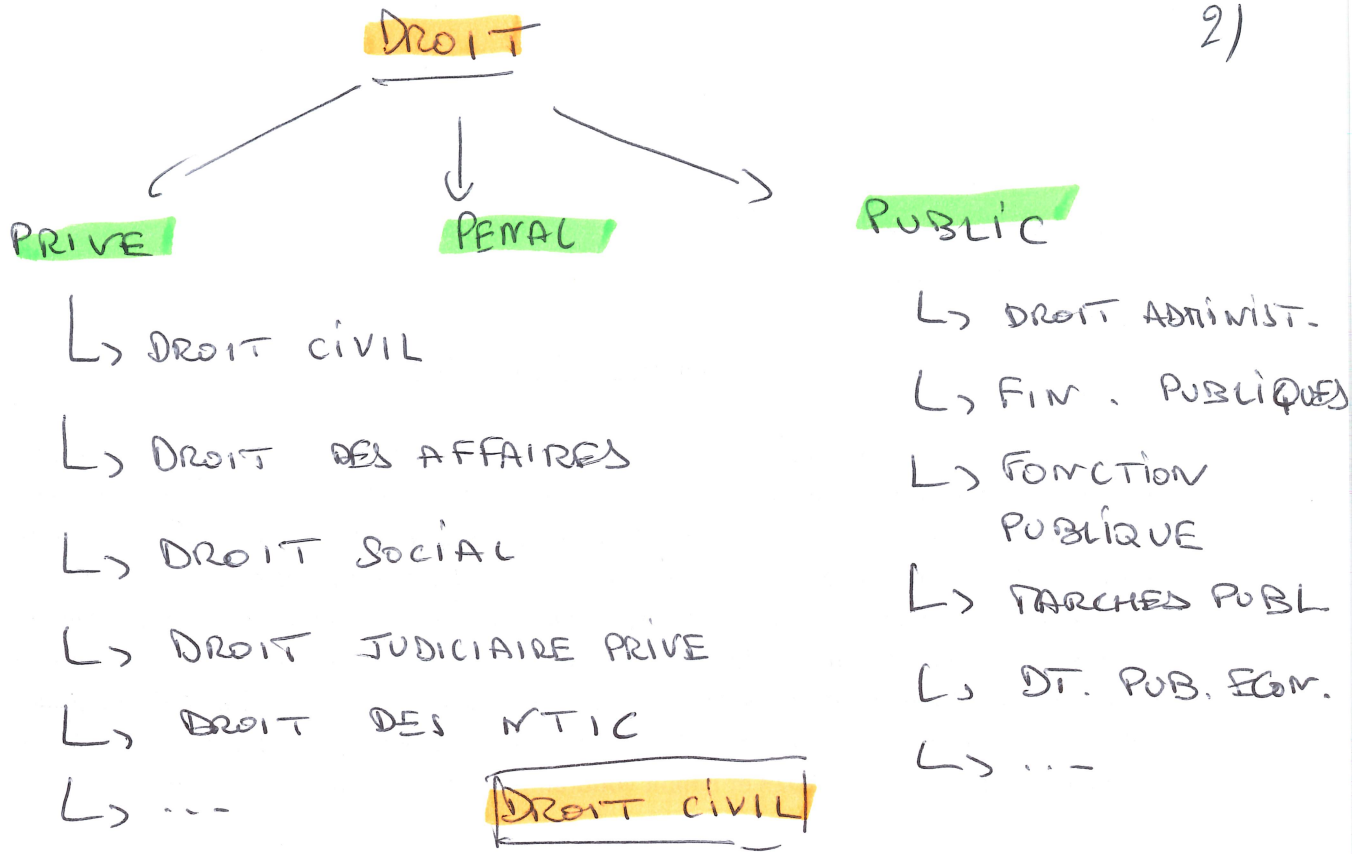 DROIT
2)
PRIVE
PENAL
PUBLIC
↳ DROIT CIVIL
↳ DROIT DES AFFAIRES
↳ DROIT SOCIAL
↳ DROIT JUDICIAIRE PRIVE
↳ DROIT DES NTIC
↳ ...
↳ DROIT ADMINIST.
↳ FIN. PUBLIQUES
↳ FONCTION
PUBLIQUE
↳ MARCHES PUBL
↳ DT. PUB. ECON.
↳ ...
DROIT CIVIL